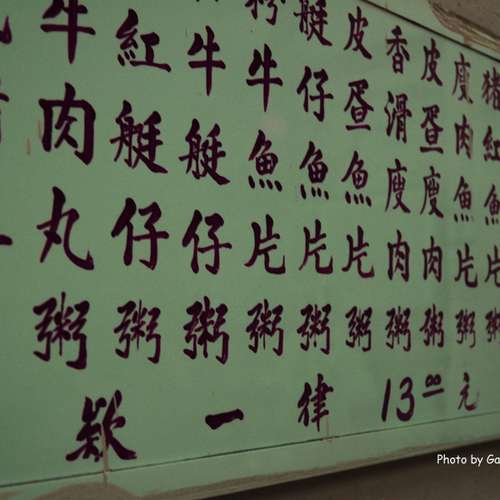 牛肉丸粥
紅艇仔粥
牛艇仔粥
牛魚片粥
艇仔魚片粥
皮疍魚片粥
香滑廋肉粥
皮疍廋肉粥
廋肉魚片粥
猪紅魚片粥
欵一律13.00元
Photo by Ga